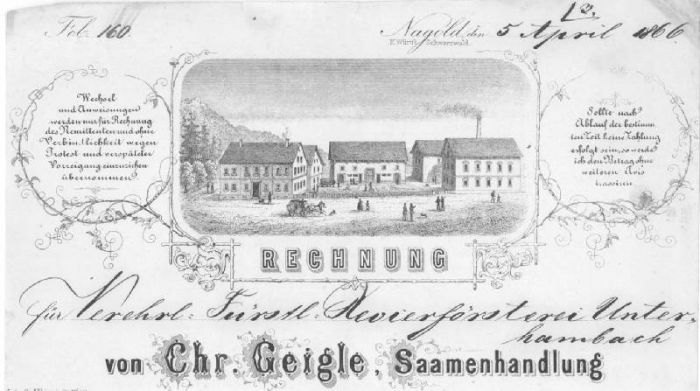 Fol. 160.
Nagold, den 5 April 1866
K. Württ. Schwarzwald.
Wechsel
und Anweisungen
werden nur für Rechnung
des Remittenten und ohne
Verbindlichkeit wegen
Protest und verspäteter
Vorzeigung einzuziehen
übernommen
Sollte nach
Ablauf der bestimm
ten Zeit keine Zahlung
erfolgt sein, so werde
ich den Betrag ohne
weiteren Avis
trassiren
RECHNUNG
für Verehrl. Fürstl. Revierförsterei Unter-
hambach
von Chr. Geigle, Saamenhandlung